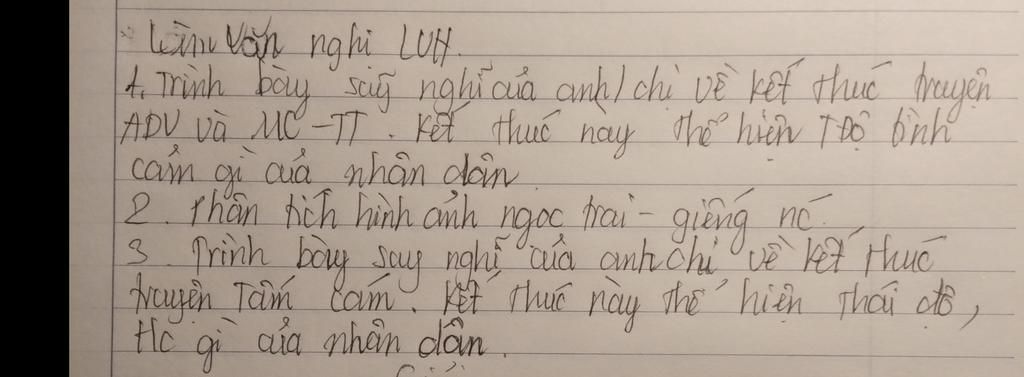 Làm văn nghị LVH.
1. Trình bày suy nghĩ của anh/chị về kết thúc truyện
ADV và MC-TT. Kết thúc này thể hiện TĐộ tình
cảm gì của nhân dân.
2. Phân tích hình ảnh ngọc trai - giếng nc.
3. Trình bày suy nghĩ của anh chị về kết thúc
truyện Tấm Cám. Kết thúc này thể hiện thái độ,
t/c gì của nhân dân.